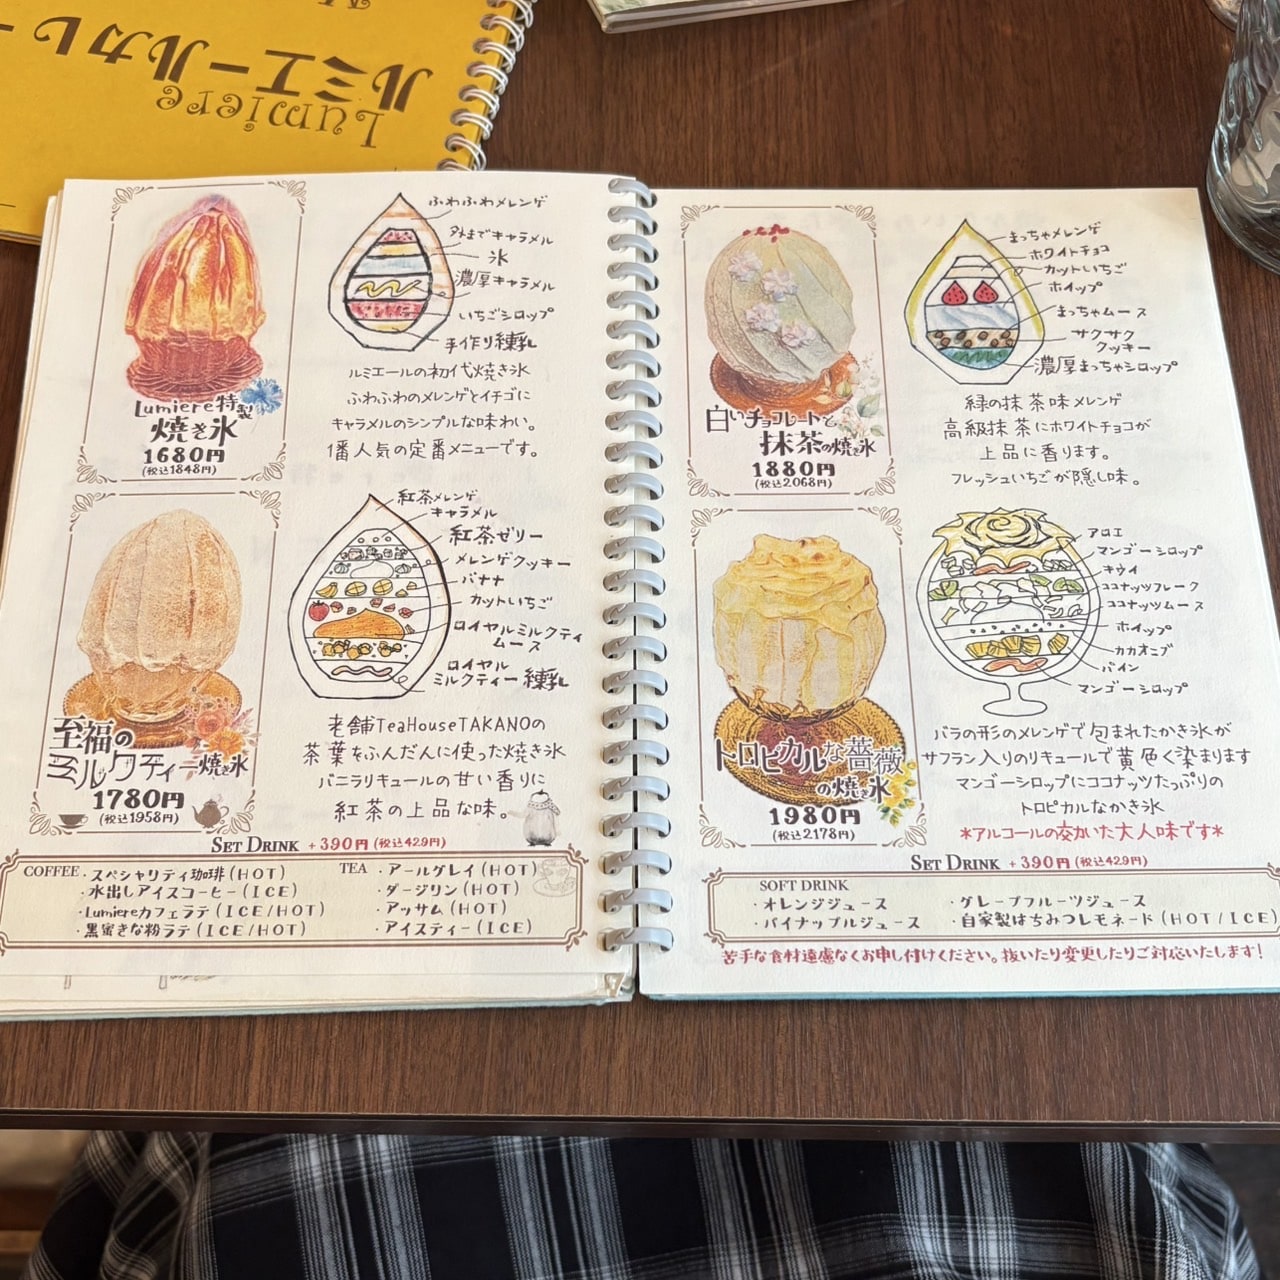 ルミエールカレー
Lumiere
ふわふわメレンゲ
外までキャラメル
氷
濃厚キャラメル
いちごシロップ
手作り練乳
ルミエールの初代焼き氷
ふわふわのメレンゲとイチゴに
キャラメルのシンプルな味わい。
1番人気の定番メニューです。
Lumiere特製
焼き氷
1680円
(税込1848円)
紅茶メレンゲ
キャラメル
紅茶ゼリー
メレンゲクッキー
バナナ
カットいちご
ロイヤルミルクティ
ムース
ロイヤル
ミルクティー練乳
老舗TeaHouseTAKANOの
茶葉をふんだんに使った焼き氷
バニラリキュールの甘い香りに
紅茶の上品な味。
至福の
ミルクティー焼き氷
1780円
(税込1958円)
SET DRINK +390円(税込429円)
COFFEE・スペシャリティ珈琲(HOT)
・水出しアイスコーヒー(ICE)
・Lumiereカフェラテ(ICE/HOT)
・黒蜜きな粉ラテ(ICE/HOT)
TEA ・アールグレイ(HOT)
・ダージリン(HOT)
・アッサム(HOT)
・アイスティー(ICE)
まっちゃメレンゲ
ホワイトチョコ
カットいちご
ホイップ
まっちゃムース
サクサク
クッキー
濃厚まっちゃシロップ
緑の抹茶味メレンゲ
高級抹茶にホワイトチョコが
上品に香ります。
フレッシュいちごが隠し味。
白いチョコレートと
抹茶の焼き氷
1880円
(税込2,068円)
アロエ
マンゴーシロップ
キウイ
ココナッツフレーク
ココナッツムース
ホイップ
カカオニブ
パイン
マンゴーシロップ
バラの形のメレンゲで包まれたかき氷が
サフラン入りのリキュールで黄色く染まります
マンゴーシロップにココナッツたっぷりの
トロピカルなかき氷
*アルコールの効いた大人味です*
トロピカルな薔薇
の焼き氷
1980円
(税込2,178円)
SET DRINK +390円(税込429円)
SOFT DRINK
・オレンジジュース
・パイナップルジュース
・グレープフルーツジュース
・自家製はちみつレモネード(HOT/ICE)
苦手な食材遠慮なくお申し付けください。抜いたり変更したりご対応いたします!